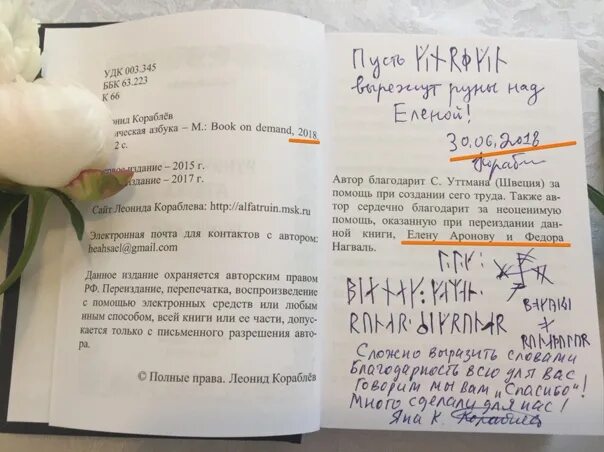 УДК 003.345
ББК 63.223
К 66
Кораблёв
азбука – М.: Book on demand, 2018.
2 с.
издание – 2015 г.
издание – 2017 г.
Сайт Леонида Кораблева: http://alfatruin.msk.ru
Электронная почта для контактов с автором:
heahsael@gmail.com
Данное издание охраняется авторским правом
РФ. Переиздание, перепечатка, воспроизведение
с помощью электронных средств или любым
иным способом, всей книги или ее части, допус-
кается только с письменного разрешения авто-
ра.
© Полные права. Леонид Кораблёв
Пусть
вырежут руны над
Еленой!
30.06.2018
Автор благодарит С. Уттмана (Швеция) за
помощь при создании сего труда. Также ав-
тор сердечно благодарит за неоценимую
помощь, оказанную при переиздании дан-
ной книги, Елену Аронову и Федора
Нагваль.
Сложно выразить словами
Благодарность всю для вас
Говорим мы вам „Спасибо"!
Много сделали для нас!
Яна К.